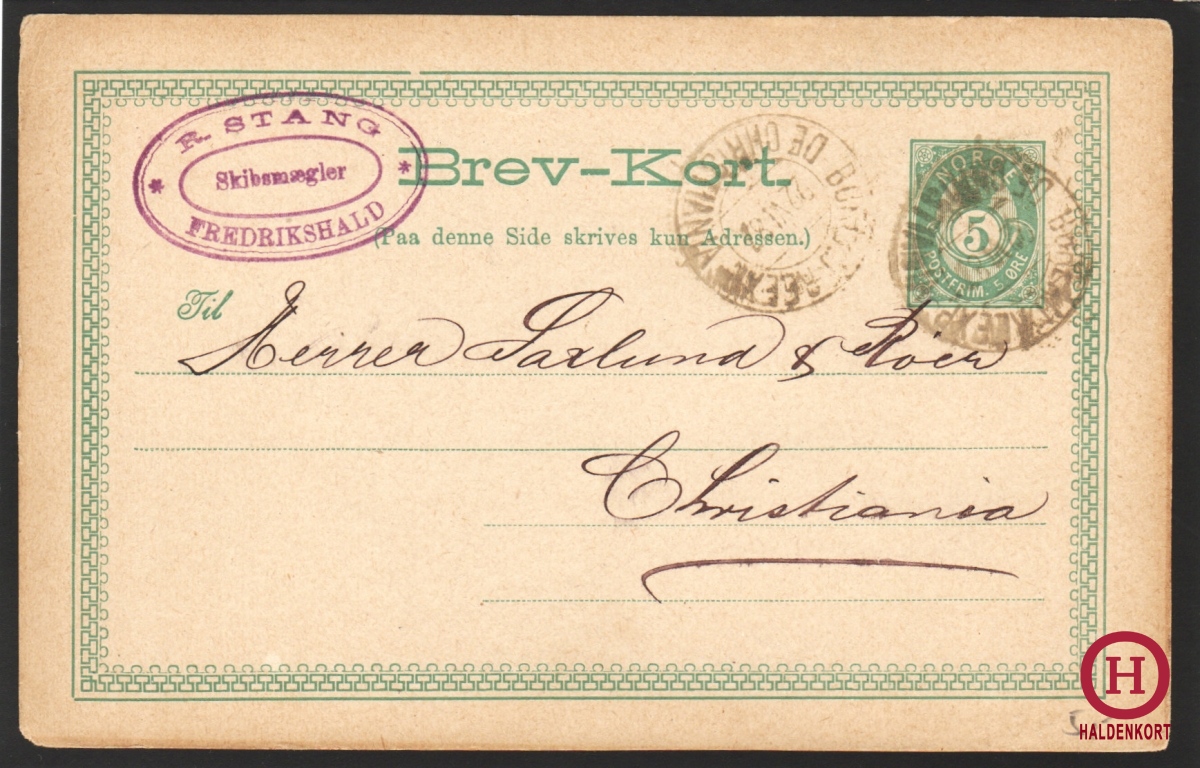 R. STANG
Skibsmægler
FREDRIKSHALD
Brev-Kort.
(Paa denne Side skrives kun Adressen.)
NORGE
5
POSTFRIM. 5 ØRE
Til
Herrer Saxlund & Røer
Christiania
H
HALDENKORT